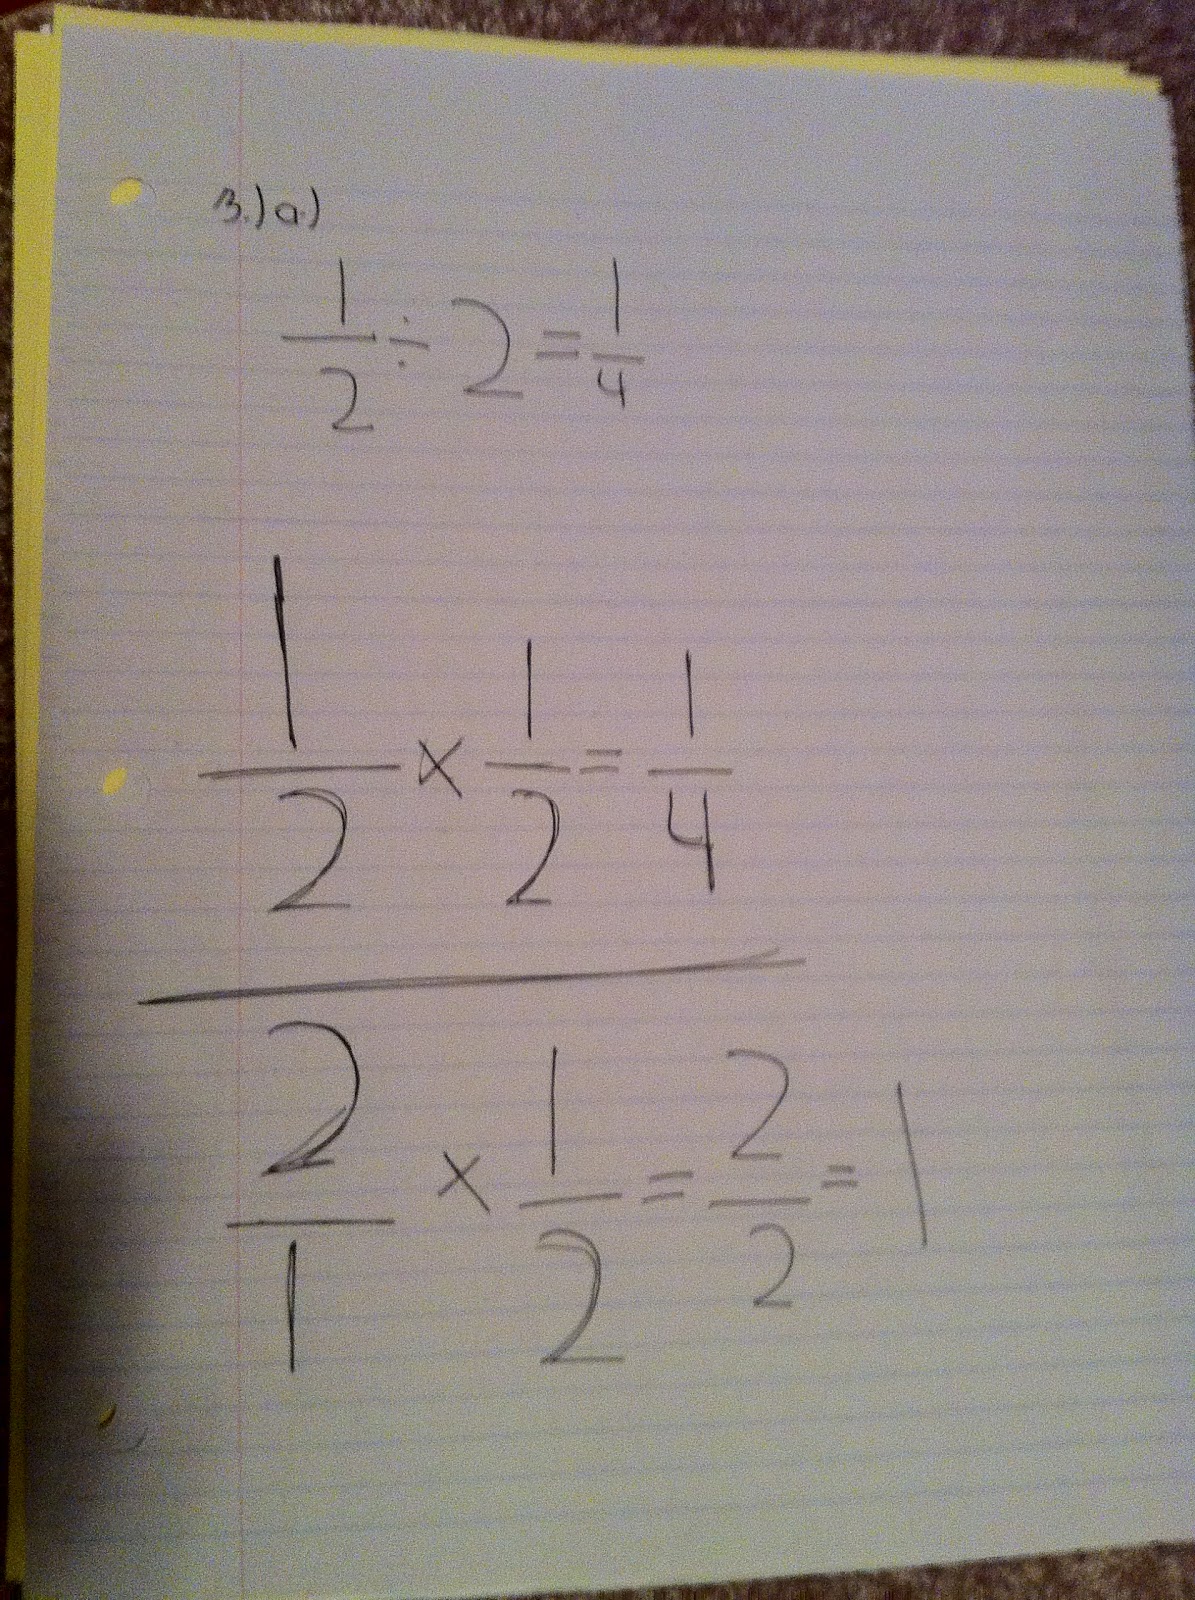 3.) a.)
1/2 ÷ 2 = 1/4
1/2 × 1/2 = 1/4
2/1 × 1/2 = 2/2 = 1